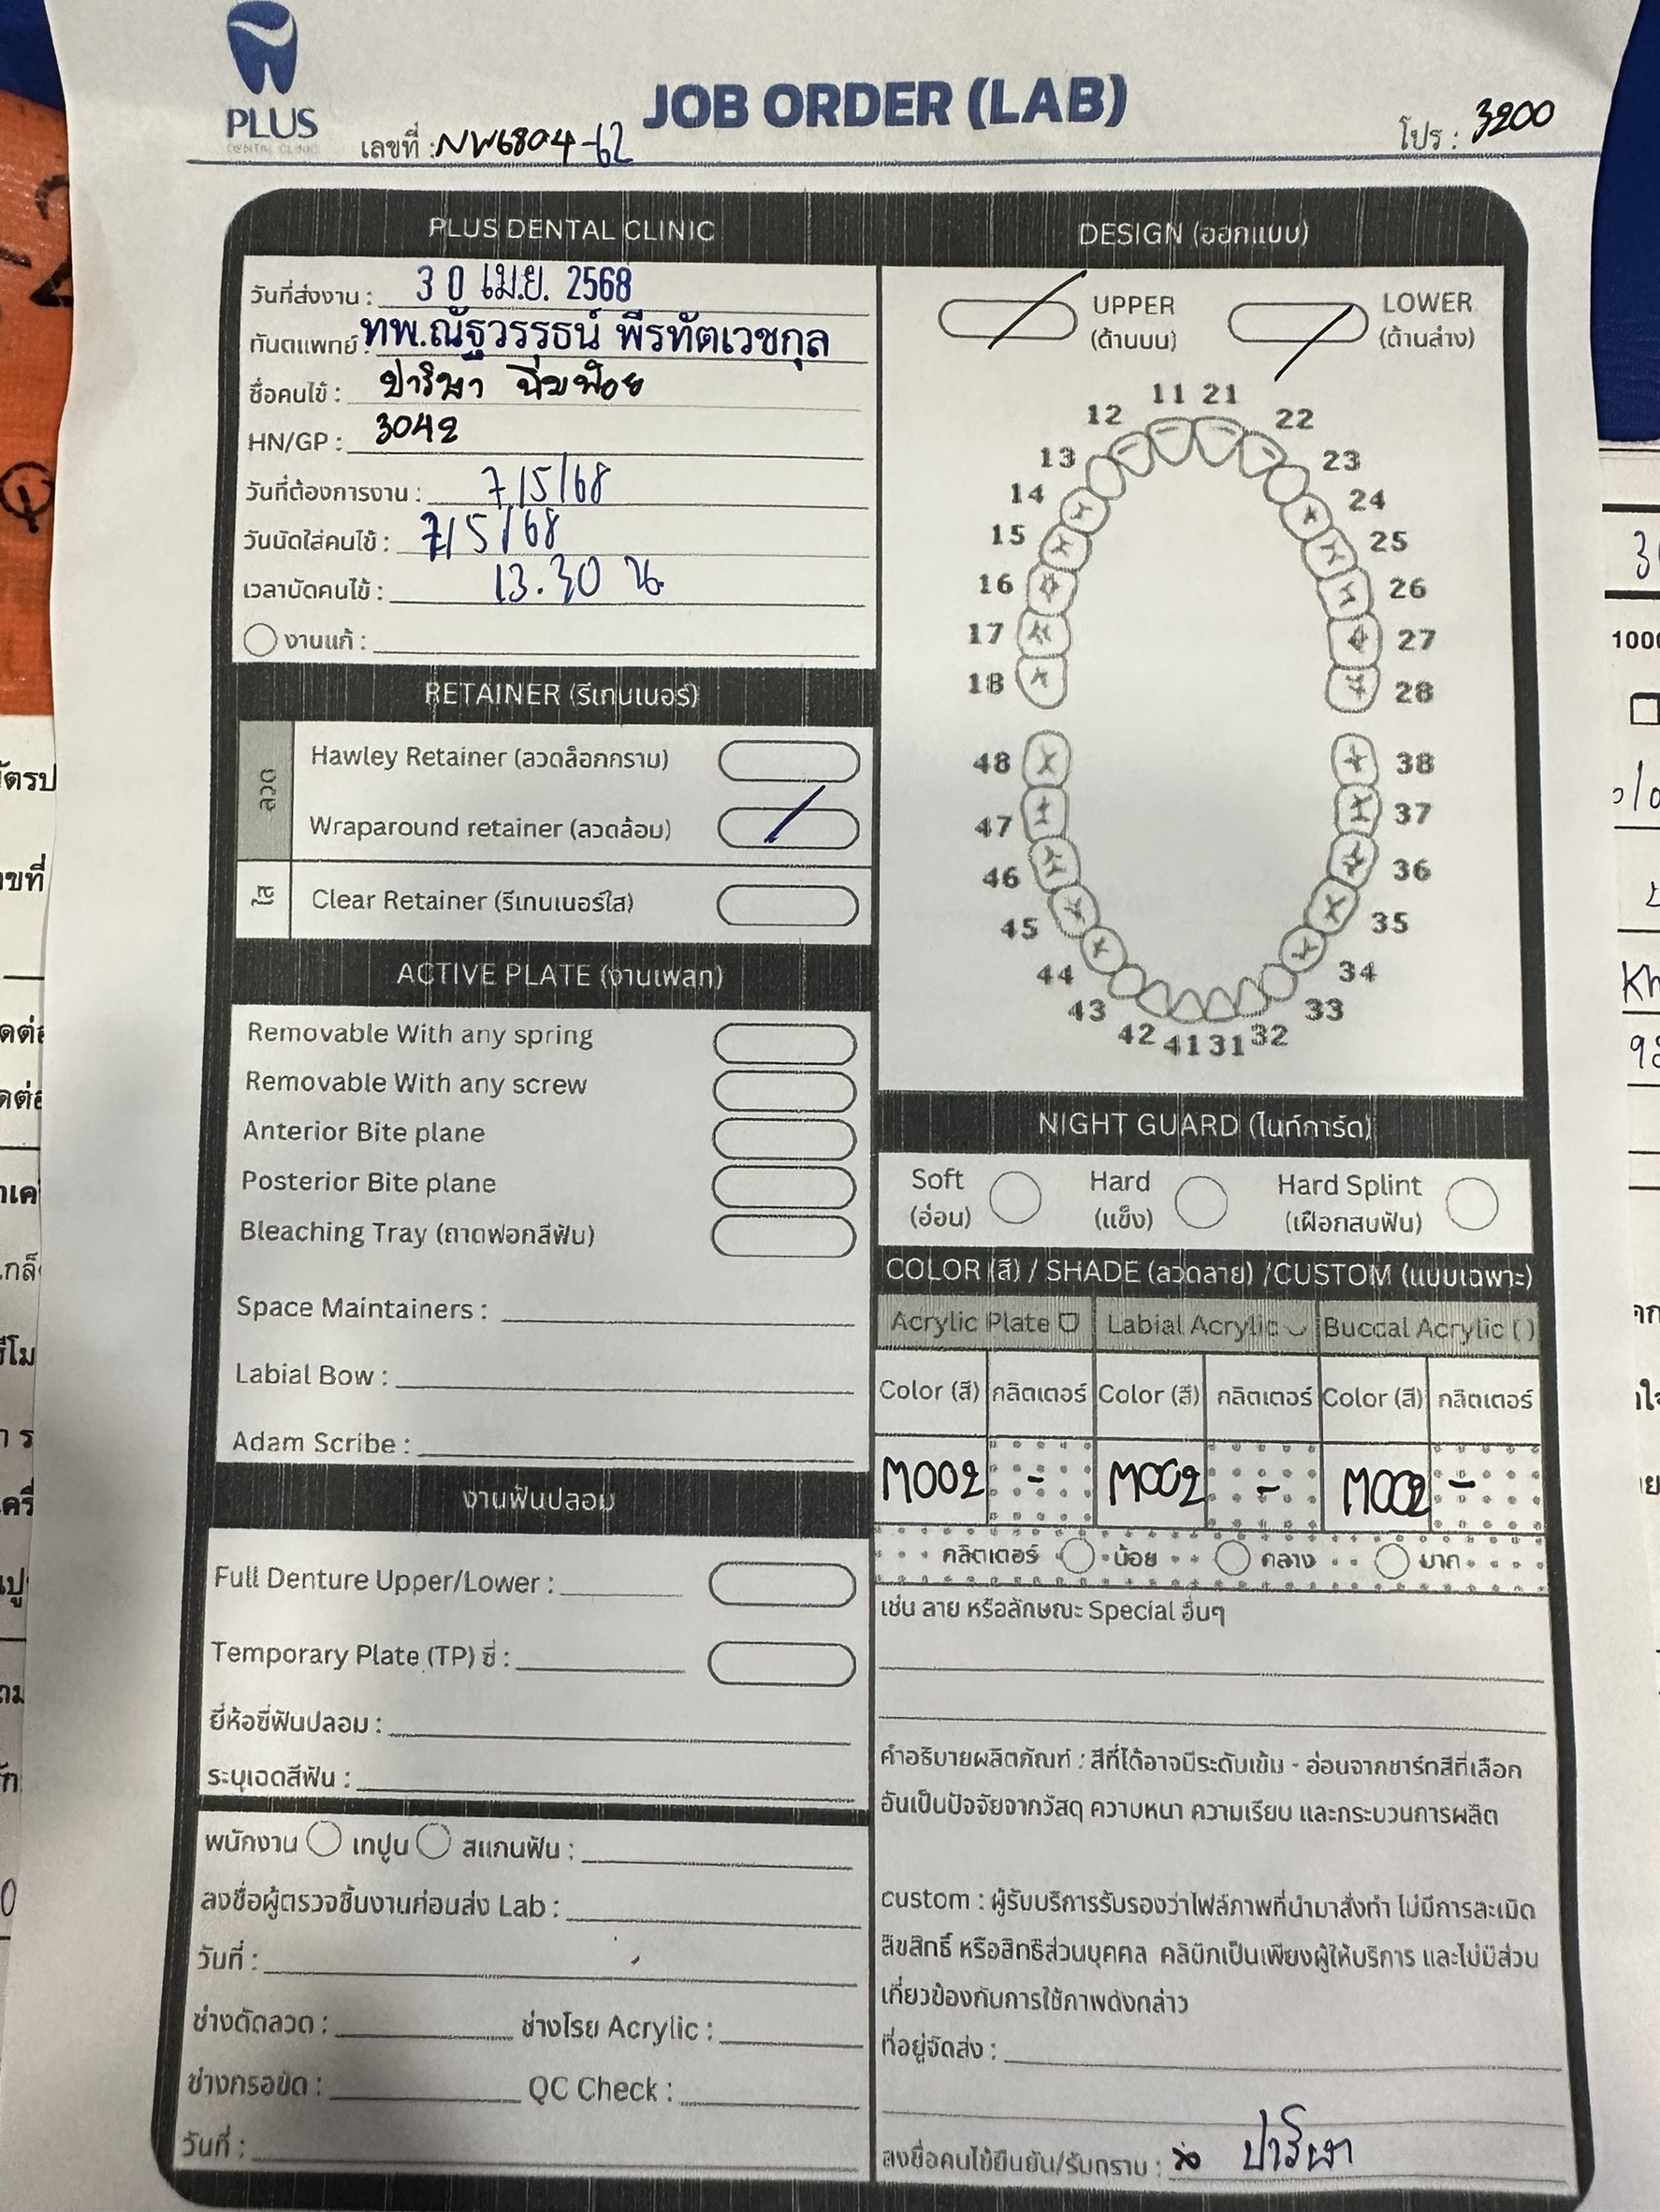 PLUS
DENTAL CLINIC
JOB ORDER (LAB)
เลขที่ : NW6804-62
โปร : 3200
PLUS DENTAL CLINIC
วันที่ส่งงาน : 30 เม.ย. 2568
ทันตแพทย์ : ทพ.ณัฐวรรธน์ พีรทัตเวชกุล
ชื่อคนไข้ : ปาริษา
HN/GP : 3042
วันที่ต้องการงาน : 7/5/68
วันนัดใส่คนไข้ : 7/5/68
เวลานัดคนไข้ : 13.30 น.
งานแก้ :
RETAINER (รีเทนเนอร์)
ลวด
Hawley Retainer (ลวดล็อกกราม)
Wraparound retainer (ลวดล้อม)
ใส
Clear Retainer (รีเทนเนอร์ใส)
ACTIVE PLATE (งานเพลท)
Removable With any spring
Removable With any screw
Anterior Bite plane
Posterior Bite plane
Bleaching Tray (ถาดฟอกสีฟัน)
Space Maintainers :
Labial Bow :
Adam Scribe :
งานฟันปลอม
Full Denture Upper/Lower :
Temporary Plate (TP) ซี่ :
ยี่ห้อซี่ฟันปลอม :
ระบุเฉดสีฟัน :
พนักงาน เทปูน สแกนฟัน :
ลงชื่อผู้ตรวจชิ้นงานก่อนส่ง Lab :
วันที่ :
ช่างดัดลวด : ช่างโรย Acrylic :
ช่างกรอขัด : QC Check :
วันที่ :
DESIGN (ออกแบบ)
UPPER LOWER
(ด้านบน) (ด้านล่าง)
11 21
12 22
13 23
14 24
15 25
16 26
17 27
18 28
48 38
47 37
46 36
45 35
44 34
43 33
42 41 31 32
NIGHT GUARD (ไนท์การ์ด)
Soft Hard Hard Splint
(อ่อน) (แข็ง) (เฝือกสบฟัน)
COLOR (สี) / SHADE (ลวดลาย) /CUSTOM (แบบเฉพาะ)
Acrylic Plate Labial Acrylic Buccal Acrylic ( )
Color (สี) กลิตเตอร์ Color (สี) กลิตเตอร์ Color (สี) กลิตเตอร์
M002 - M002 - M002 -
กลิตเตอร์ น้อย กลาง มาก
เช่น ลาย หรือลักษณะ Special อื่นๆ
คำอธิบายผลิตภัณฑ์ : สีที่ได้อาจมีระดับเข้ม - อ่อนจากชาร์ทสีที่เลือก
อันเป็นปัจจัยจากวัสดุ ความหนา ความเรียบ และกระบวนการผลิต
custom : ผู้รับบริการรับรองว่าไฟล์ภาพที่นำมาสั่งทำ ไม่มีการละเมิด
ลิขสิทธิ์ หรือสิทธิส่วนบุคคล คลินิกเป็นเพียงผู้ให้บริการ และไม่มีส่วน
เกี่ยวข้องกับการใช้ภาพดังกล่าว
ที่อยู่จัดส่ง :
ลงชื่อคนไข้ยืนยัน/รับทราบ : ปาริษา